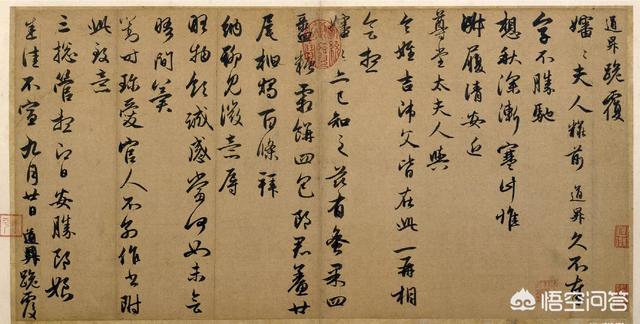 道昇跪覆
嬸々夫人粧前道昇久不奉
字不勝馳
想秋深漸寒計惟
淑履清安近
尊堂太夫人與
令姪吉師父皆在此一再相
會想
嬸々亦已知之茲有蜜果四
盝糖霜餅四包郎君鯗廿
尾柏燭百條拜
納聊見微意辱
物領誠感當何如未會
晤間冀
對時珍愛官人不別作書附
此致意
三總管想即日安勝郎娘
悉佳不宣九月廿日道昇跪覆
悟空问答